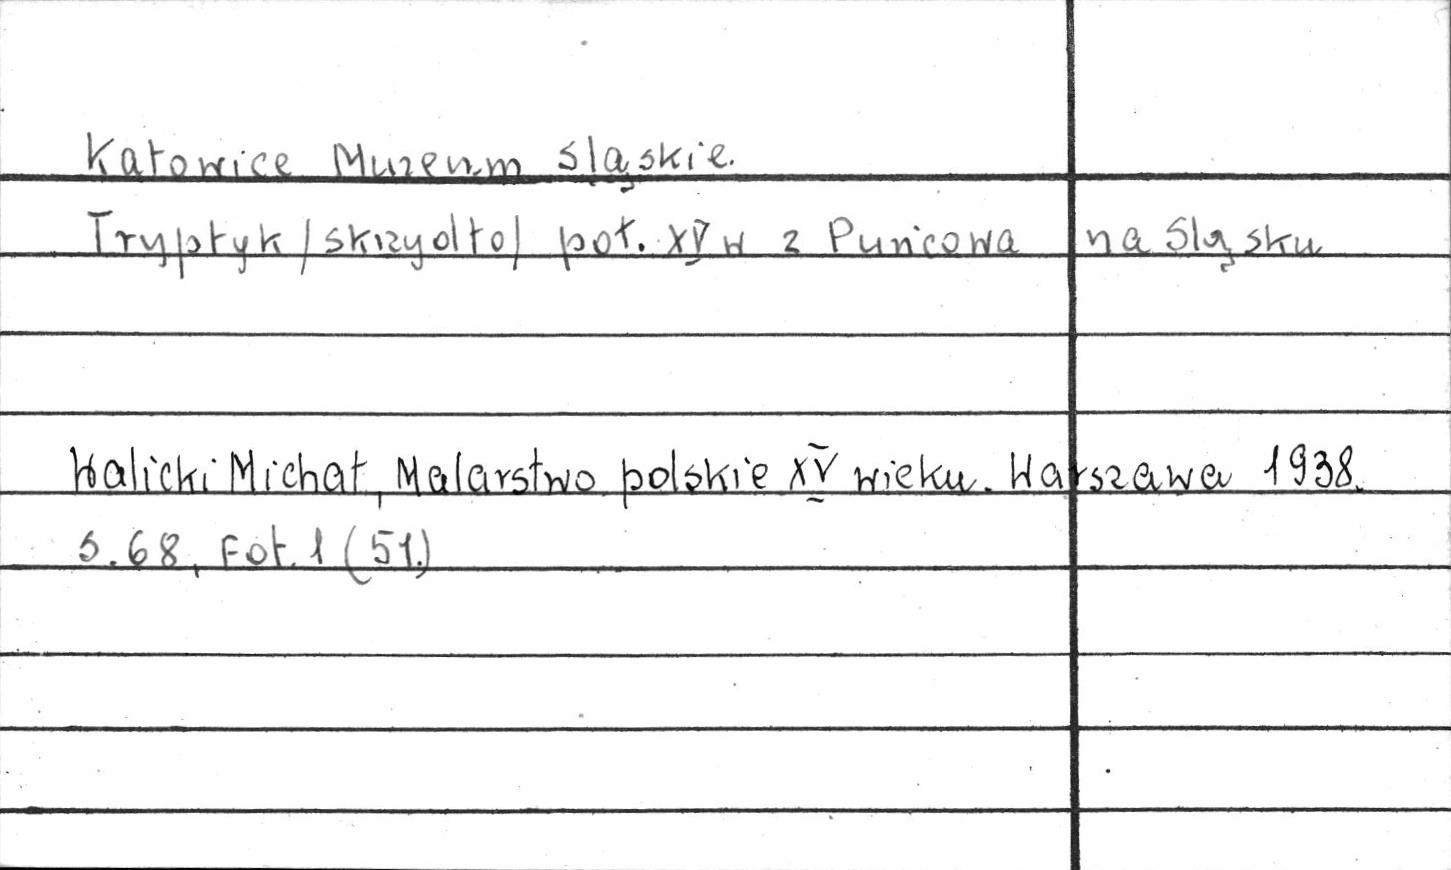 Katowice Muzeum Śląskie.
Tryptyk /skrzydło/ poł. XV w z Puńcowa na Śląsku
Walicki Michał, Malarstwo polskie XV wieku. Warszawa 1938.
S. 68, Fot. 1 (51.)